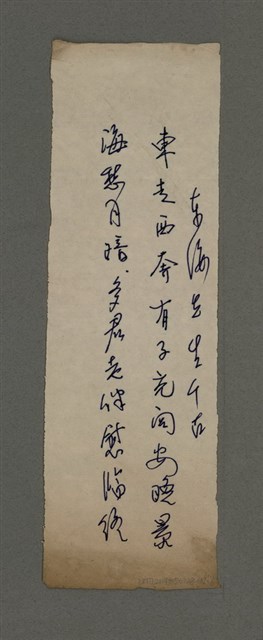 東海先生千古
東走西奔有子克家安晚景
海愁月暗多君老伴慰臨終